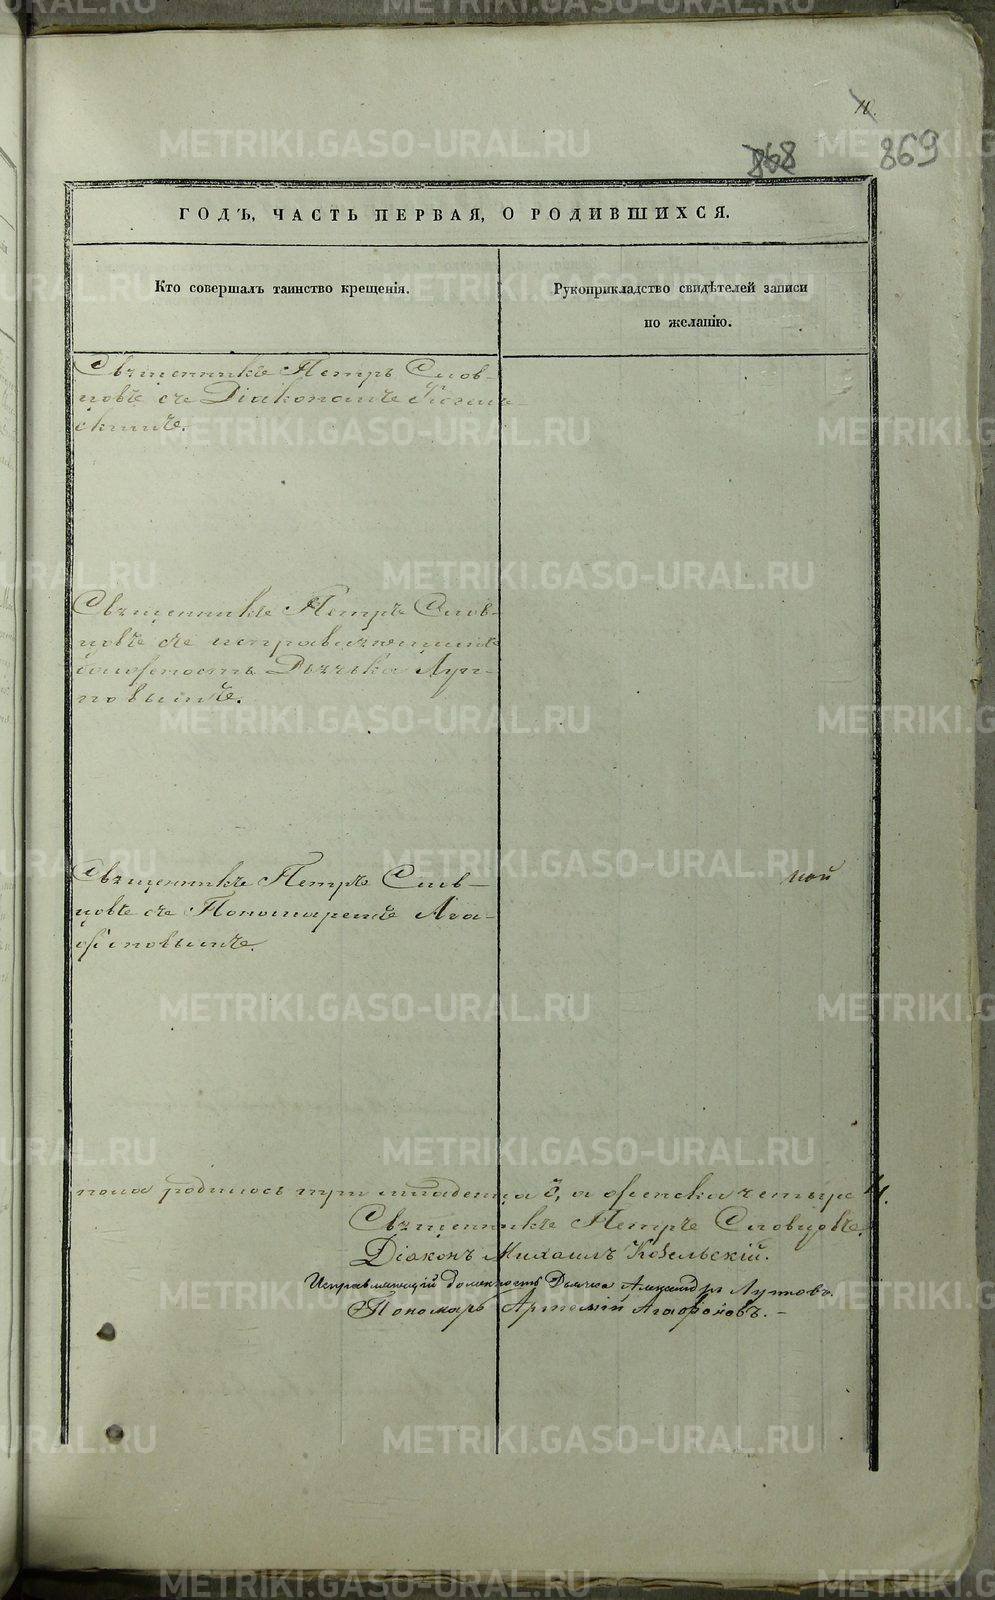 11.
868 869
ГОДЪ, ЧАСТЬ ПЕРВАЯ, О РОДИВШИХСЯ.
Кто совершалъ таинство крещенія.
Рукоприкладство свидѣтелей записи
по желанію.
Священникъ Петръ Слов-
цовъ съ Діакономъ
скимъ.
Священникъ Петръ Слов-
цовъ съ исправляющимъ
должность Дьячка Луп-
повымъ.
Священникъ Петръ Слов-
цовъ съ Пономаремъ Ага-
фоновымъ.
ной
пола родилось три младенца 3, а женска четыре 4.
Священникъ Петръ Словцовъ.
Діаконъ Михаилъ Козельскій.
Исправляющій должность Дьячка Александръ Лупповъ.
Пономарь Артемій Агафоновъ. -
METRIKI.GASO-URAL.RU